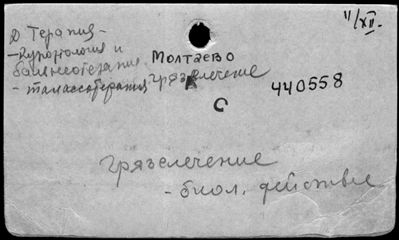 11/XII.
Д Терапия-
-Курортология и
бальнеотерапия
-талассотерапия
Молтаево
грязелечение
К
С
440558
грязелечение
-биол. действие